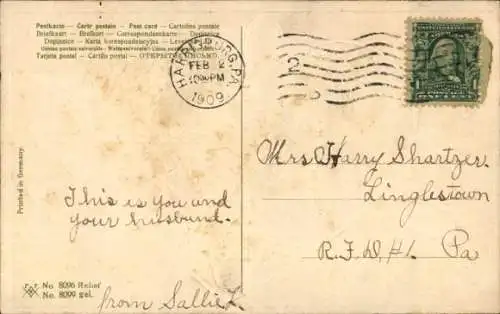 Postkarte — Carte postale — Post card — Cartolina postale
Briefkaart — Brefkort — Correspondenzkarte — Dopisnice
Dopisnica — Karta korespondencyjna — Levelező
Tarjeta postal — Cartão postal — ОТКРЫТОЕ ПИСЬМО.
HARRISBURG, PA.
FEB 2
PM
1909
2
1 1
Mrs Harry Shartzer.
Linglestown
R.F.D.#1. Pa
This is you and
your husbund.
from Sallie L
Printed in Germany.
No. 8096 Relief
No. 8099 gel.